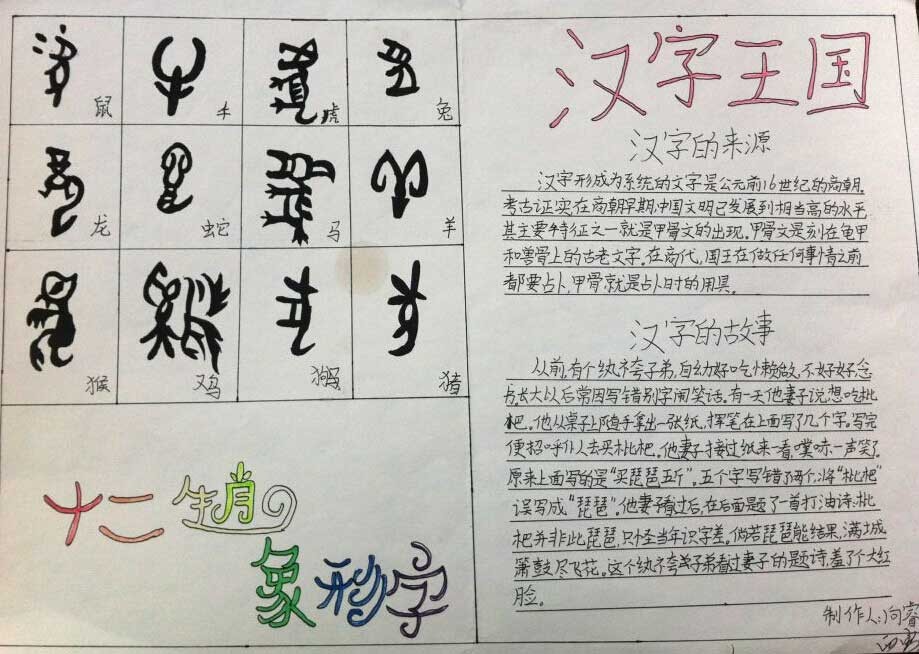 鼠 牛 虎 兔
龙 蛇 马 羊
猴 鸡 狗 猪
十二生肖
象形字
汉字王国
汉字的来源
汉字形成为系统的文字是公元前16世纪的商朝。
考古证实在商朝早期,中国文明已发展到相当高的水平,
其主要特征之一就是甲骨文的出现。甲骨文是刻在龟甲
和兽骨上的古老文字。在商代,国王在做任何事情之前
都要占卜,甲骨就是占卜时的用具。
汉字的故事
从前,有个纨袴子弟,自幼好吃懒做,不好好念
书,长大以后常因写错别字闹笑话。有一天他妻子说想吃枇
杷。他从桌子上随手拿出一张纸,挥笔在上面写了几个字。写完
便招呼仆人去买枇杷。他妻子接过纸来一看,噗哧一声笑了。
原来上面写的是“买琵琶五斤”。五个字写错了两个,将“枇杷”
误写成“琵琶”。他妻子看过后,在后面题了一首打油诗:枇
杷并非此琵琶,只怪当年识字差。倘若琵琶能结果,满城
箫鼓尽飞花。这个纨袴子弟看过妻子的题诗,羞了个大红
脸。
制作人:向睿